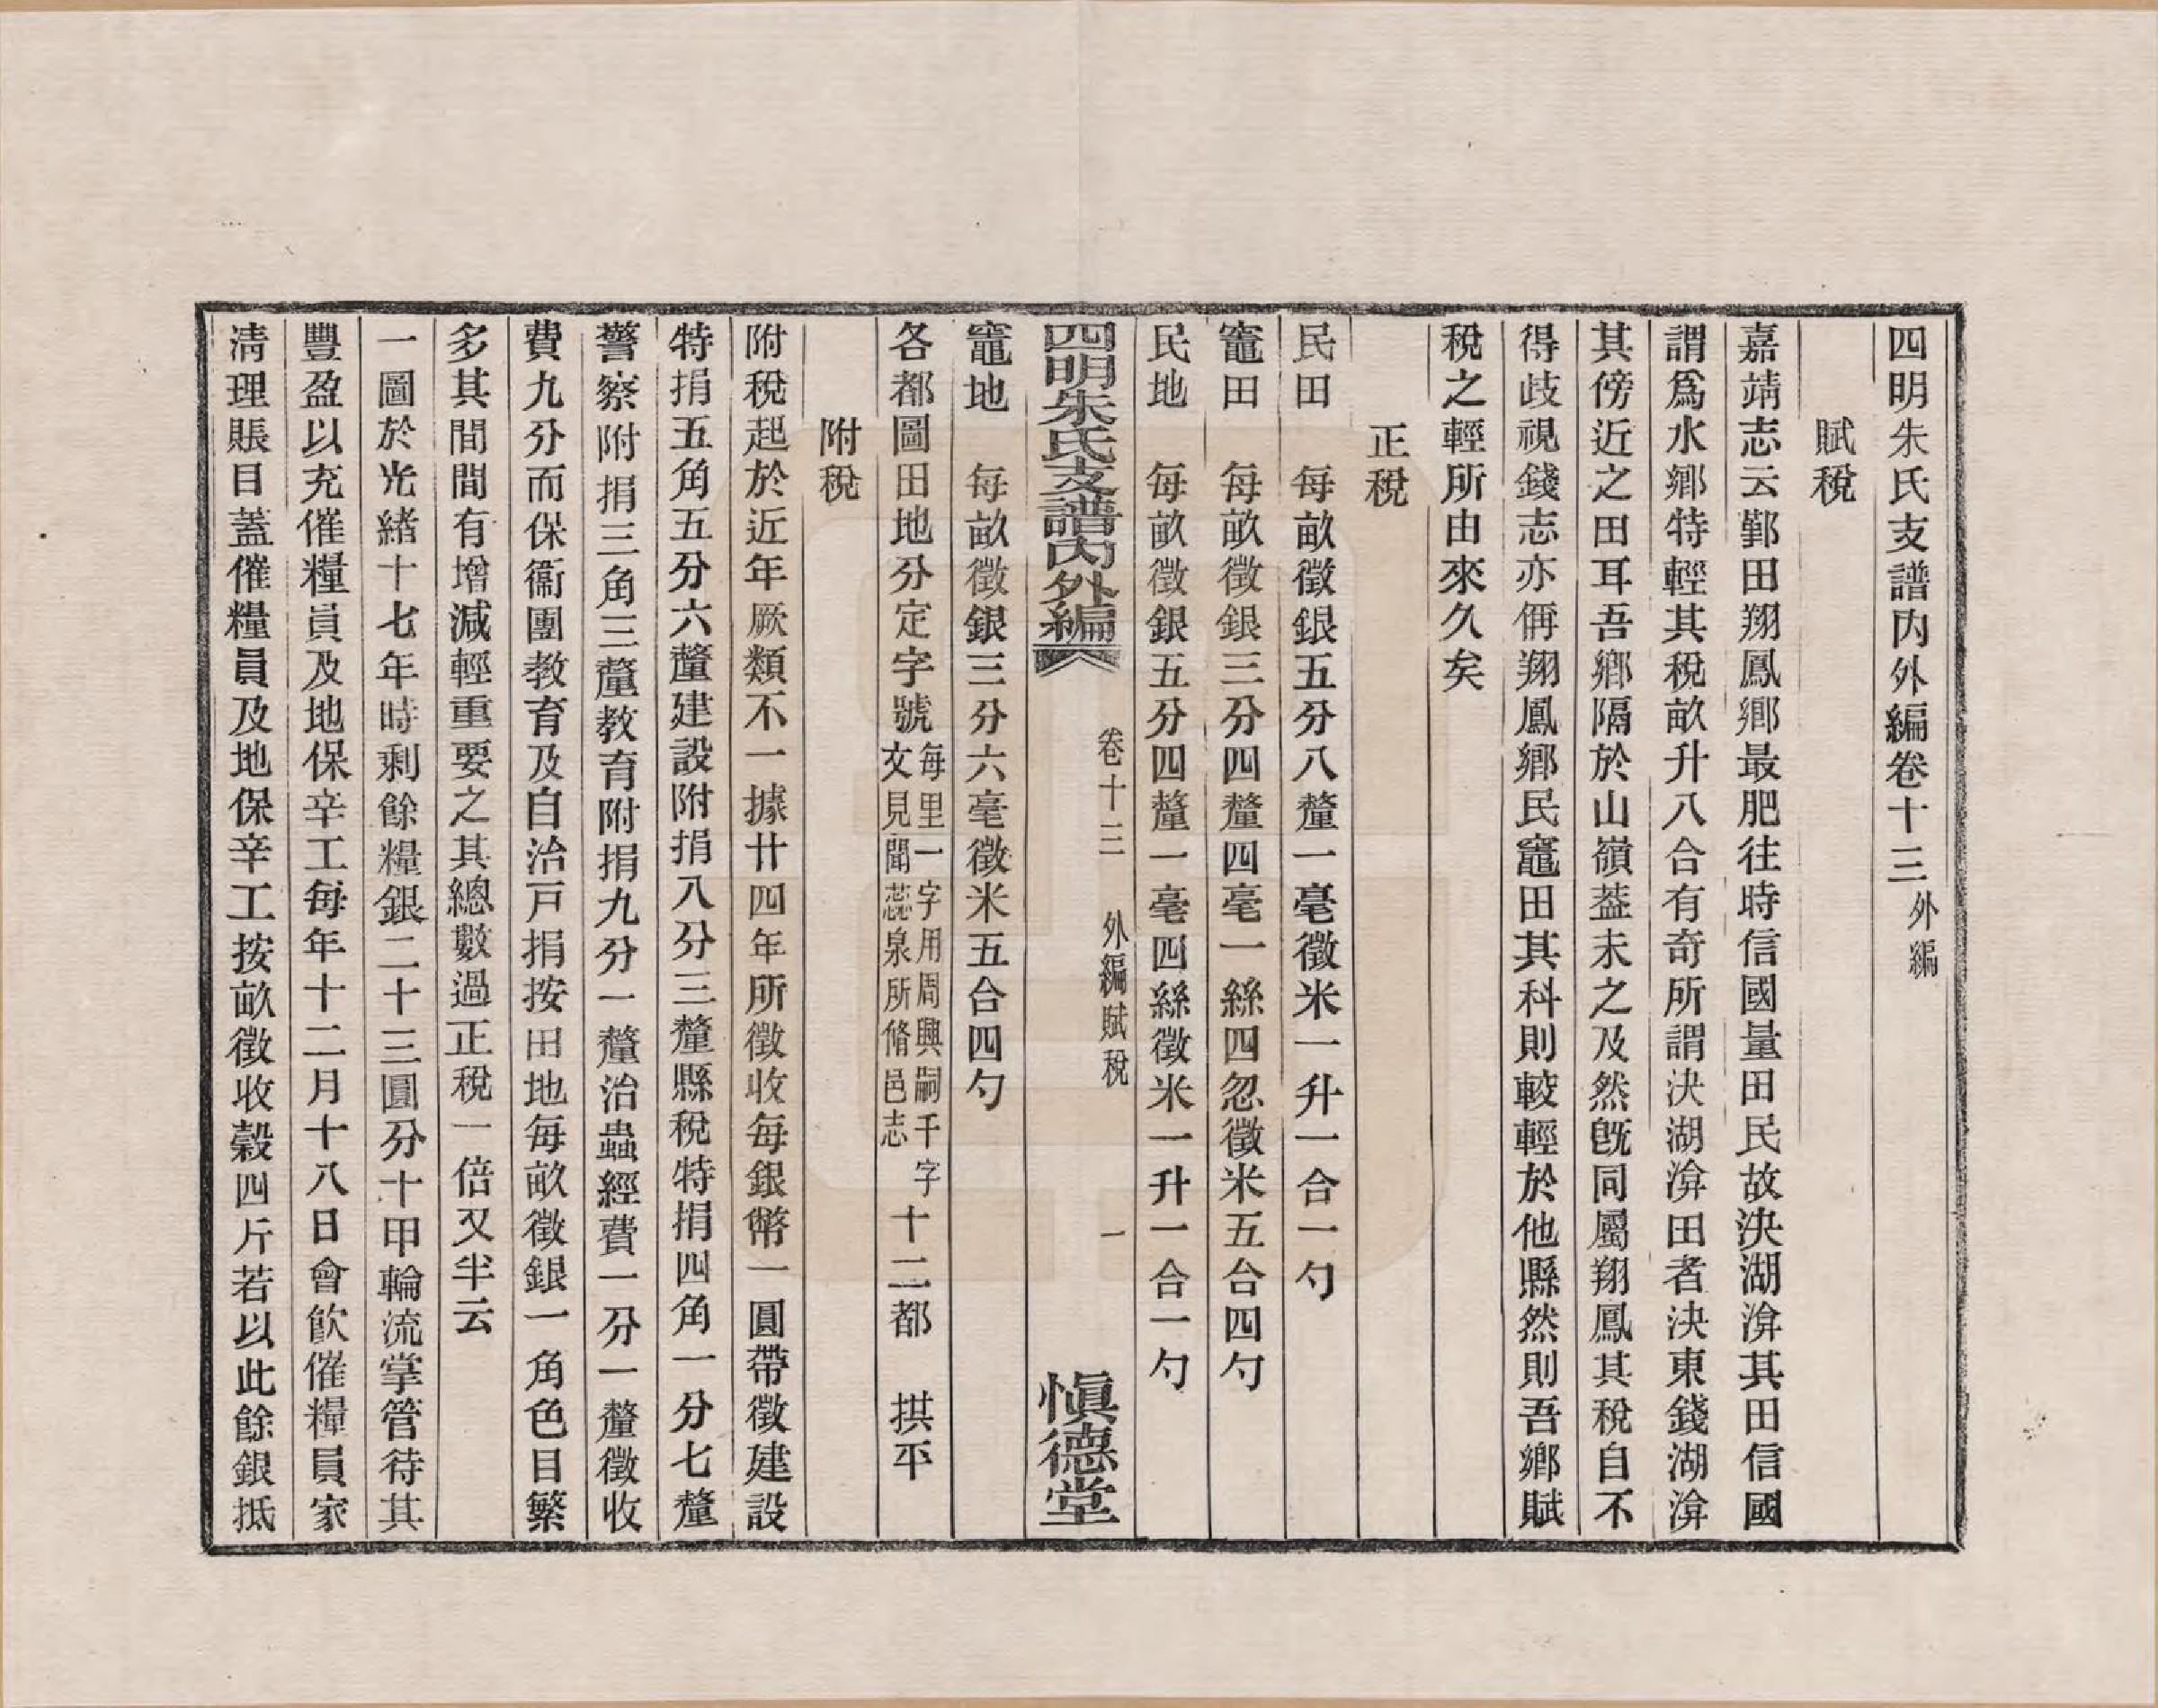 四明朱氏支譜內外編卷十三外編
賦稅
嘉靖志云鄞田翔鳳鄉最肥往時信國量田民故決湖渰其田信國
謂爲水鄉特輕其稅畝升八合有奇所謂決湖渰田者決東錢湖渰
其傍近之田耳吾鄉隔於山嶺葢未之及然旣同屬翔鳳其稅自不
得歧視錢志亦偁翔鳳鄉民竈田其科則較輕於他縣然則吾鄉賦
稅之輕所由來久矣
正稅
民田　每畝徵銀五分八釐一毫徵米一升一合一勺
竈田　每畝徵銀三分四釐四毫一絲四忽徵米五合四勺
民地　每畝徵銀五分四釐一毫四絲徵米一升一合一勺
四明朱氏支譜內外編　卷十三　外編賦稅　一　愼德堂
竈地　每畝徵銀三分六毫徵米五合四勺
各都圖田地分定字號每里一字用周興嗣千字文見聞蕊泉所脩邑志十二都　拱平
附稅
附稅起於近年厥類不一據廿四年所徵收每銀幣一圓帶徵建設
特捐五角五分六釐建設附捐八分三釐縣稅特捐四角一分七釐
警察附捐三角三釐教育附捐九分一釐治蟲經費一分一釐徵收
費九分而保衞團教育及自治戶捐按田地每畝徵銀一角色目繁
多其間間有增減輕重要之其總數過正稅一倍又半云
一圖於光緒十七年時剩餘糧銀二十三圓分十甲輪流掌管待其
豐盈以充催糧員及地保辛工每年十二月十八日會飮催糧員家
淸理賬目蓋催糧員及地保辛工按畝徵收穀四斤若以此餘銀抵